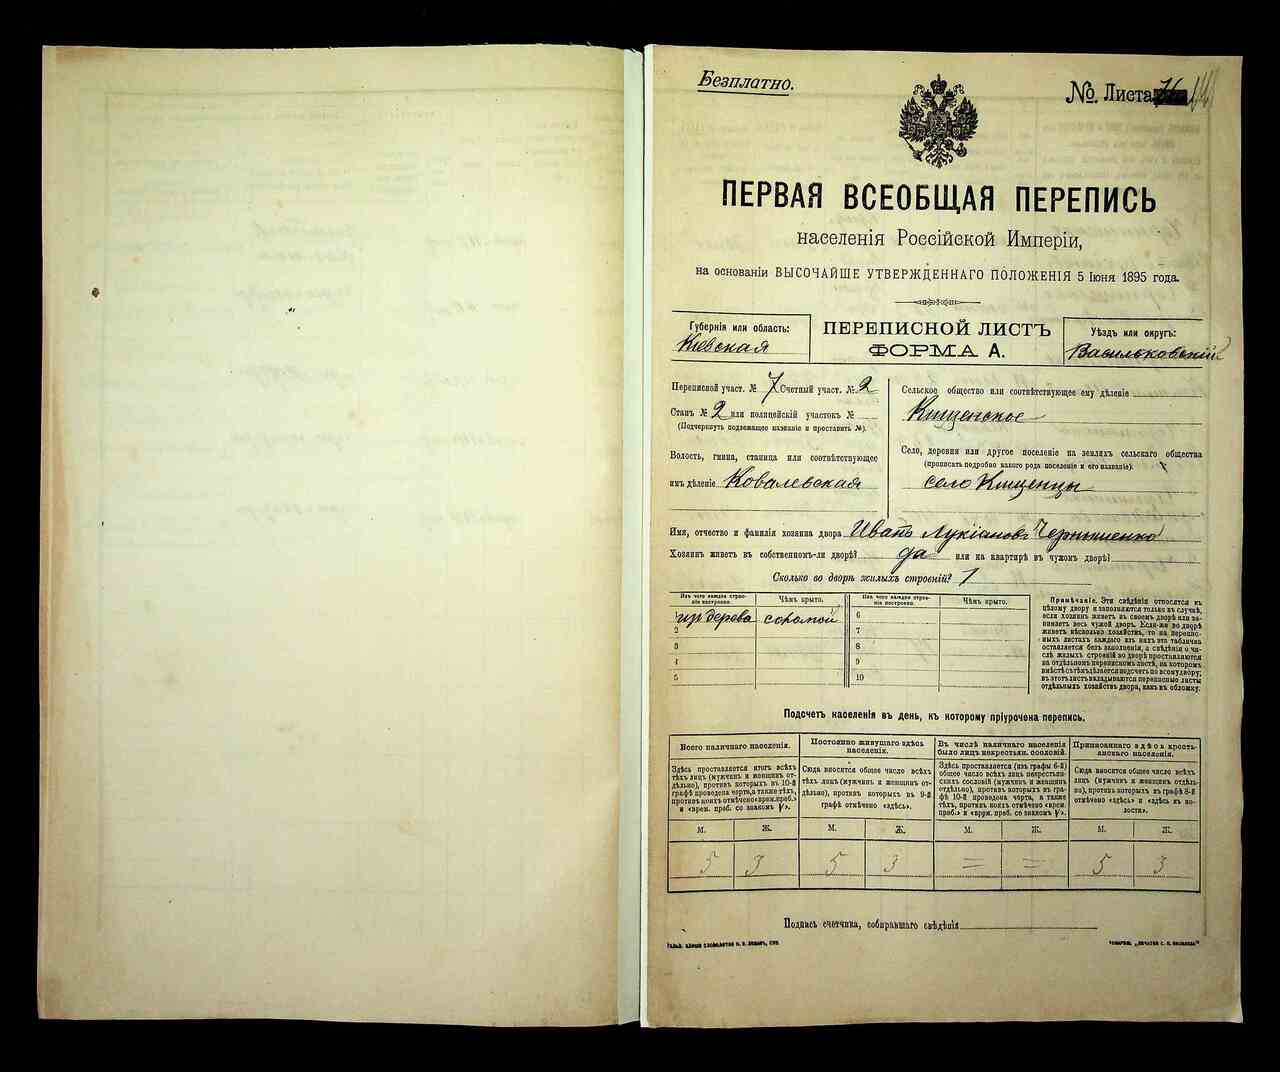 Безплатно.
№. Листа
ПЕРВАЯ ВСЕОБЩАЯ ПЕРЕПИСЬ
населенія Россійской Имперіи,
на основаніи ВЫСОЧАЙШЕ УТВЕРЖДЕННАГО ПОЛОЖЕНІЯ 5 Іюня 1895 года.
Губернія или область:
Кіевская
ПЕРЕПИСНОЙ ЛИСТЪ
ФОРМА А.
Уѣздъ или округъ:
Васильковскій
Переписной участ. № 7 Счетный участ. № 2
Станъ № 2 или полицейскій участокъ №
(Подчеркнуть подлежащее названіе и проставить №).
Волость, гмина, станица или соотвѣтствующее
имъ дѣленіе Ковалевская
Сельское общество или соотвѣтствующее ему дѣленіе
Кищенское
Село, деревня или другое поселеніе на земляхъ сельскаго общества
(прописать подробно какого рода поселеніе и его названіе):
село Кищенцы
Имя, отчество и фамилія хозяина двора Иванъ Лукіановъ Чернышенко
Хозяинъ живетъ въ собственномъ-ли дворѣ? да или на квартирѣ въ чужомъ дворѣ?
Сколько во дворѣ жилыхъ строеній? 1
Изъ чего каждое строеніе построено.
Чѣмъ крыто.
Изъ чего каждое строеніе построено.
Чѣмъ крыто.
изъ дерева соломой 6
2 7
3 8
4 9
5 10
Примѣчаніе. Эти свѣдѣнія относятся къ
цѣлому двору и заполняются только въ случаѣ,
если хозяинъ живетъ въ своемъ дворѣ или занимаетъ весь чужой дворъ. Если-же во дворѣ
живетъ нѣсколько хозяйствъ, то на переписныхъ листахъ каждаго изъ нихъ эта табличка
оставляется безъ заполненія, а свѣдѣнія о числѣ жилыхъ строеній во дворѣ проставляются
на отдѣльномъ переписномъ листѣ, на которомъ
вмѣстѣ съ тѣмъ дѣлается подсчетъ по всему двору;
въ этотъ листъ вкладываются переписные листы
отдѣльныхъ хозяйствъ двора, какъ въ обложку.
Подсчетъ населенія въ день, къ которому пріурочена перепись.
Всего наличнаго населенія.
Постоянно живущаго здѣсь
населенія.
Въ числѣ наличнаго населенія
было лицъ некрестьян. сословій.
Приписаннаго здѣсь крестьянскаго населенія.
Здѣсь проставляется итогъ всѣхъ
тѣхъ лицъ (мужчинъ и женщинъ отдѣльно), противъ которыхъ въ 10-й
графѣ проведена черта, а также тѣхъ,
противъ коихъ отмѣчено «врем. преб.»
и «врем. преб. со знакомъ V».
Сюда вносится общее число всѣхъ
тѣхъ лицъ (мужчинъ и женщинъ отдѣльно), противъ которыхъ въ 9-й
графѣ отмѣчено «здѣсь».
Здѣсь проставляется (изъ графы 6-й)
общее число всѣхъ лицъ некрестьянскихъ сословій (мужчинъ и женщинъ
отдѣльно), противъ которыхъ въ графѣ 10-й проведена черта, а также
тѣхъ, противъ коихъ отмѣчено «врем.
преб.» и «врем. преб. со знакомъ V».
Сюда вносится общее число всѣхъ
лицъ (мужчинъ и женщинъ отдѣльно), противъ которыхъ въ графѣ 8-й
отмѣчено «здѣсь» и «здѣсь въ волости».
М. Ж. М. Ж. М. Ж. М. Ж.
5 3 5 3 = = 5 3
Подпись счетчика, собиравшаго свѣдѣнія